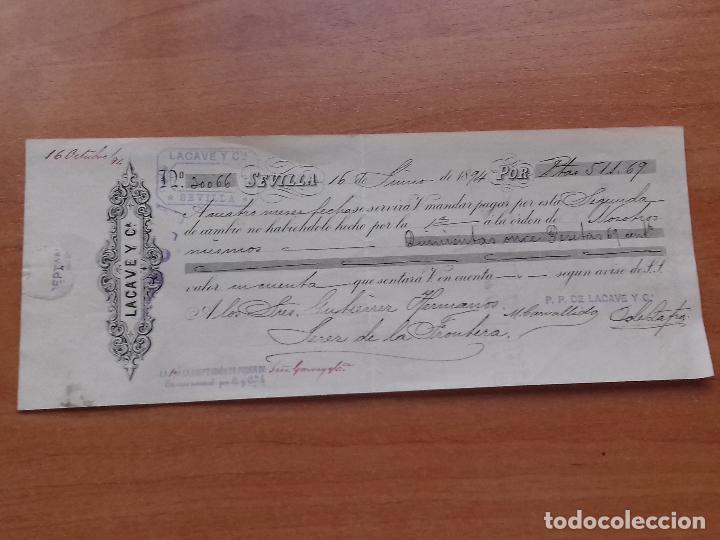 16 Octubre 94
LACAVE Y Cª
SEVILLA
Nº 20066 SEVILLA 16 de Junio de 1894 POR Ptas 511.69
A cuatro meses fecha se servirá V. mandar pagar por esta Segunda
de cambio no habiéndolo hecho por la 1ª à la orden de Nosotros
mismos Quinientas once Pesetas 69 cent
valor en cuenta que sentará V. en cuenta según aviso de S.S.
A los Sres. Gutiérrez Hermanos
Jerez de la Frontera.
P. P. DE LACAVE Y Cª
LACAVE Y Cª
LA 1ª Y LA ACEPTACION EN PODER DE
todocoleccion.net